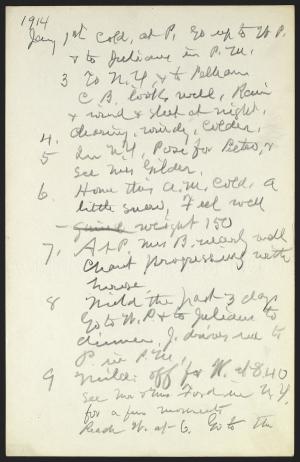 1914
Jany 1st Cold, at P. Go up to W P.
& to Julians in P.M.
3 To N.Y. & to Pelham
C. B. looks well, Rain
& wind & sleet at night.
4. clearing, windy, colder.
5 In N.Y. Pose for Pietro, &
see Mrs Gilder.
6. Home this a.m. Cold, a
little snow, Feel well
– weight 150
7. At P Mrs B. nearly well
Chant progressing with
house.
8 Mild the past 3 days
Go to W. P & to Julians to
dinner, J. drives me to
P. in P.M.
9 Mild: off for W. at 8.40
see Mr & Mrs Ford in N.Y.
for a few moments
Reach W. at 6. Go to the